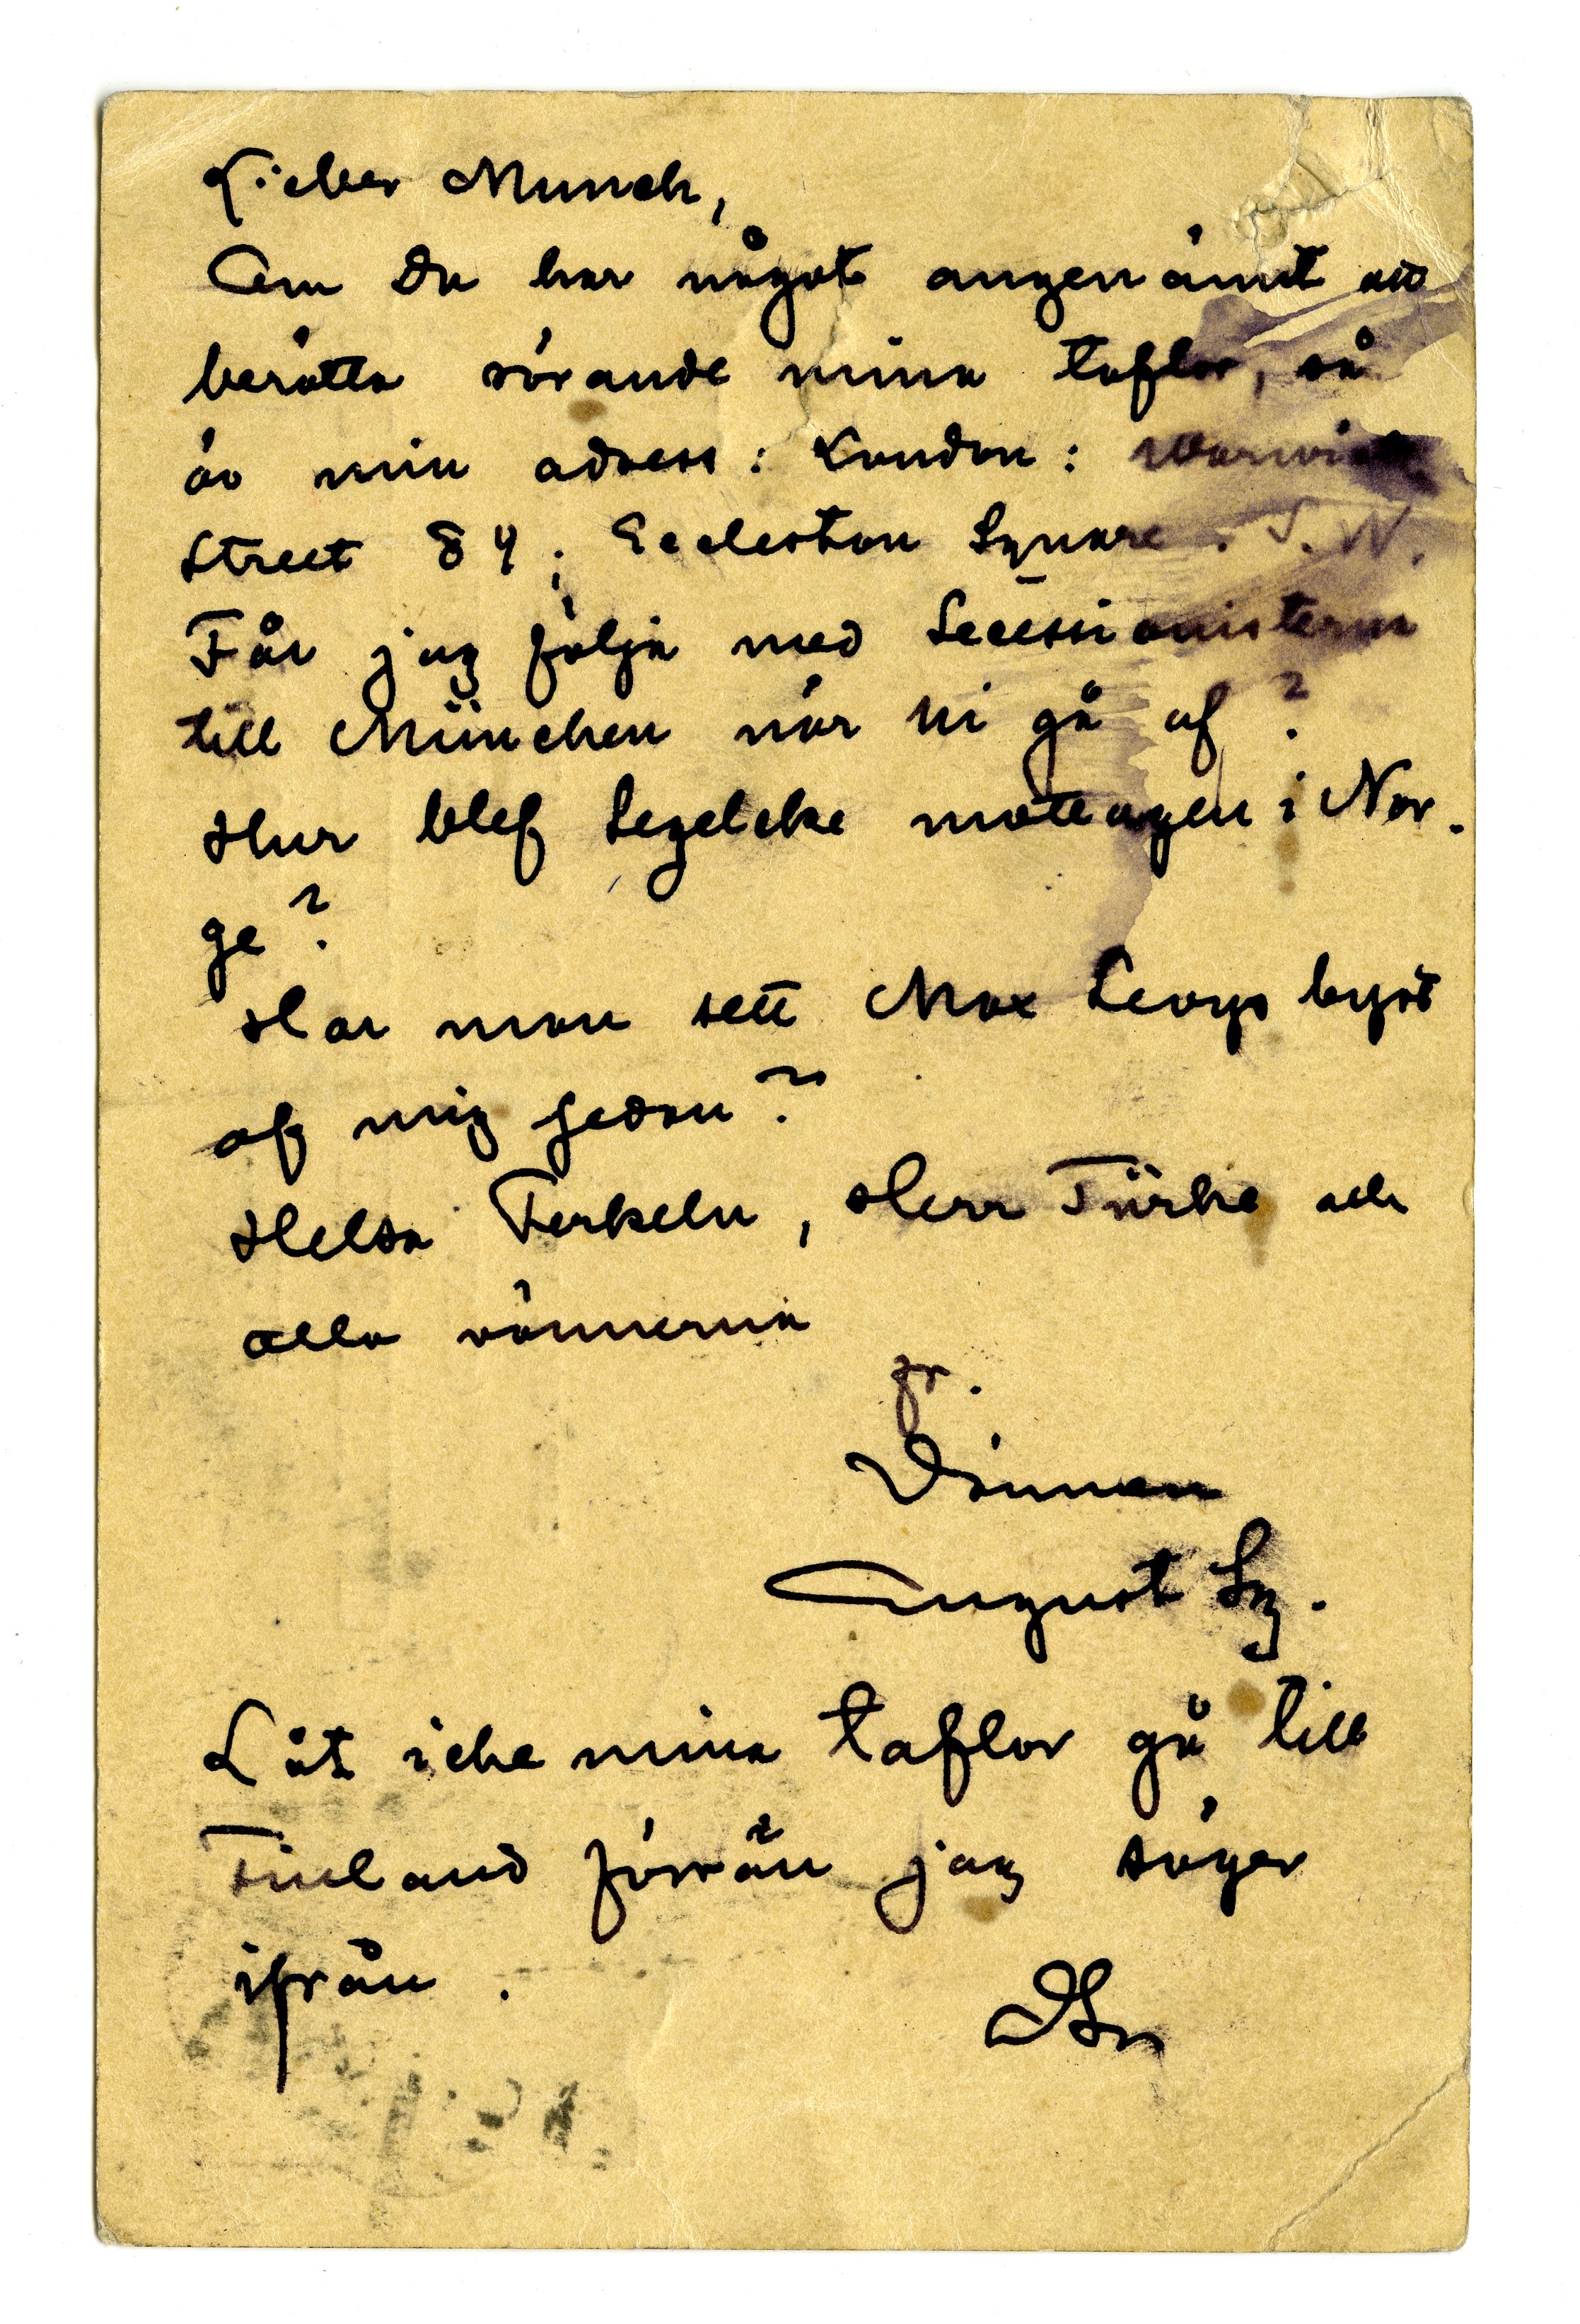 Lieber Munch,
Om Du har något angenämt att
berätta rörande mina taflor, så
är min adress: London: Warwick
Street 84; Eccleston Square. S.W.
Får jag följa med Secessionisterna
till München när Ni gå af?
Hur blef Legelcke mottagen i Nor-
ge?
Har man sett Max Levys byst
af mig sedan?
Helsa Ferkeln, Herr Türke och
alla vännerna
fr.
Vännen
August Sg.
Låt icke mina taflor gå till
Finland förrän jag säger
ifrån.